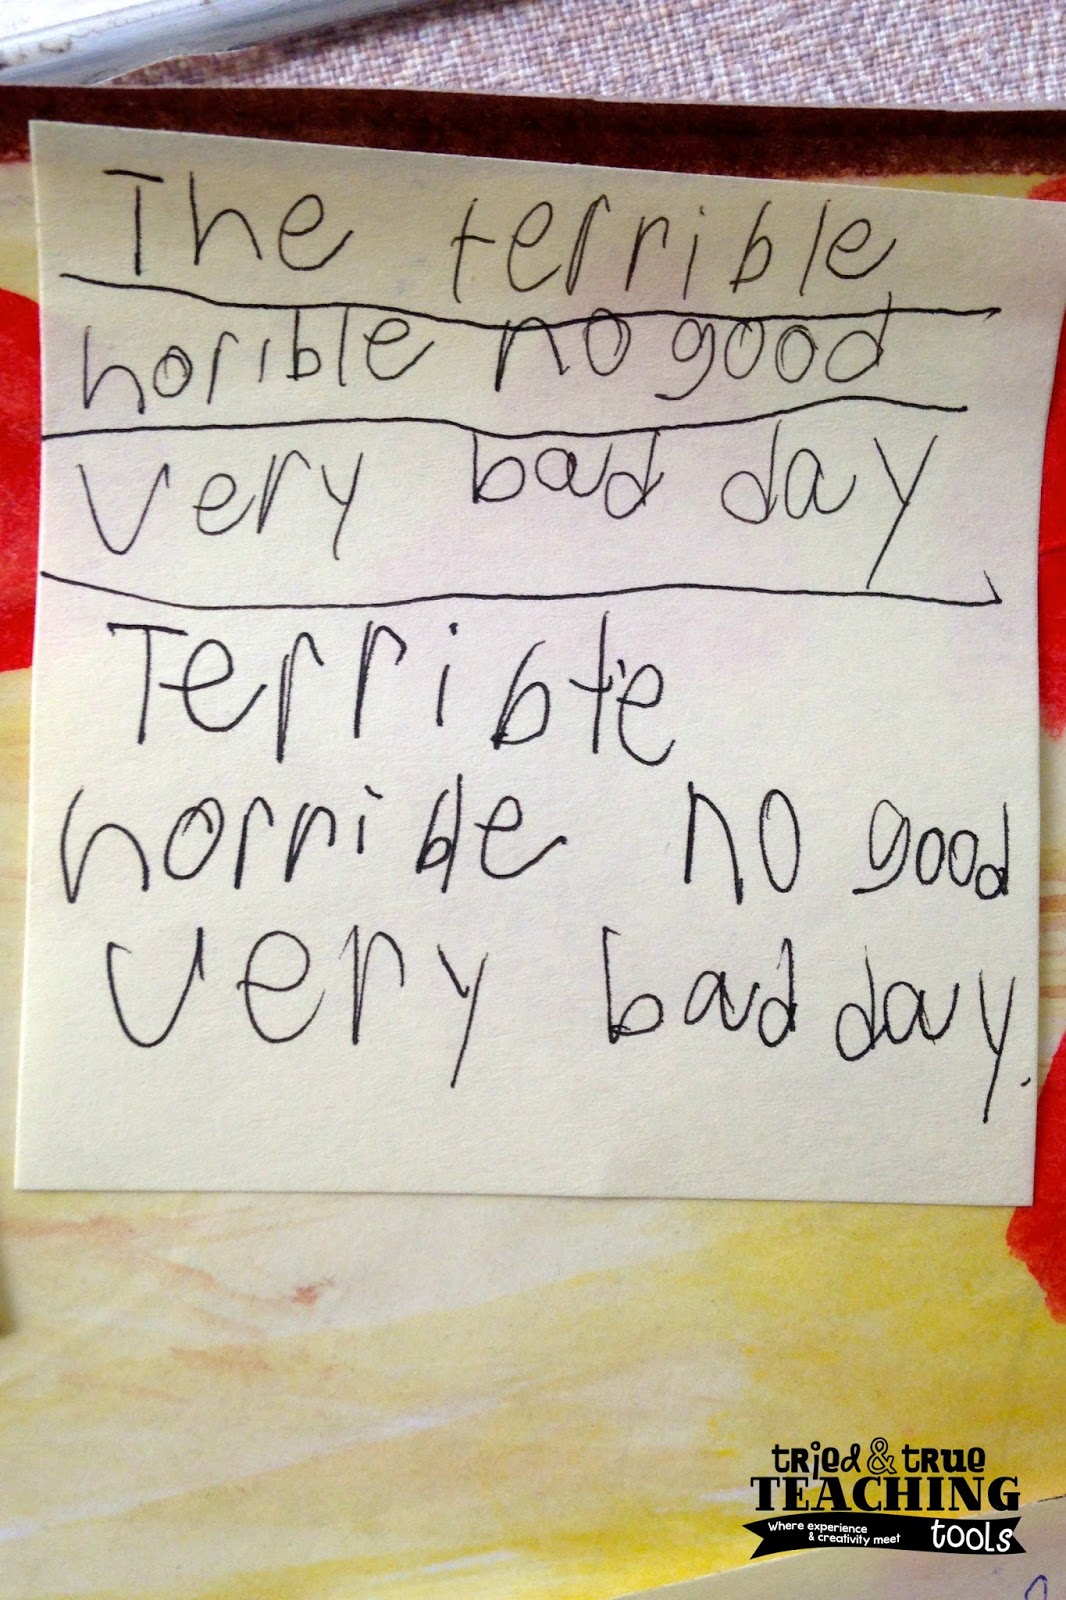 The terrible
horible no good
very bad day
Terrible
horrible no good
very bad day.
tried & true
TEACHING
Where experience
& creativity meet
tools